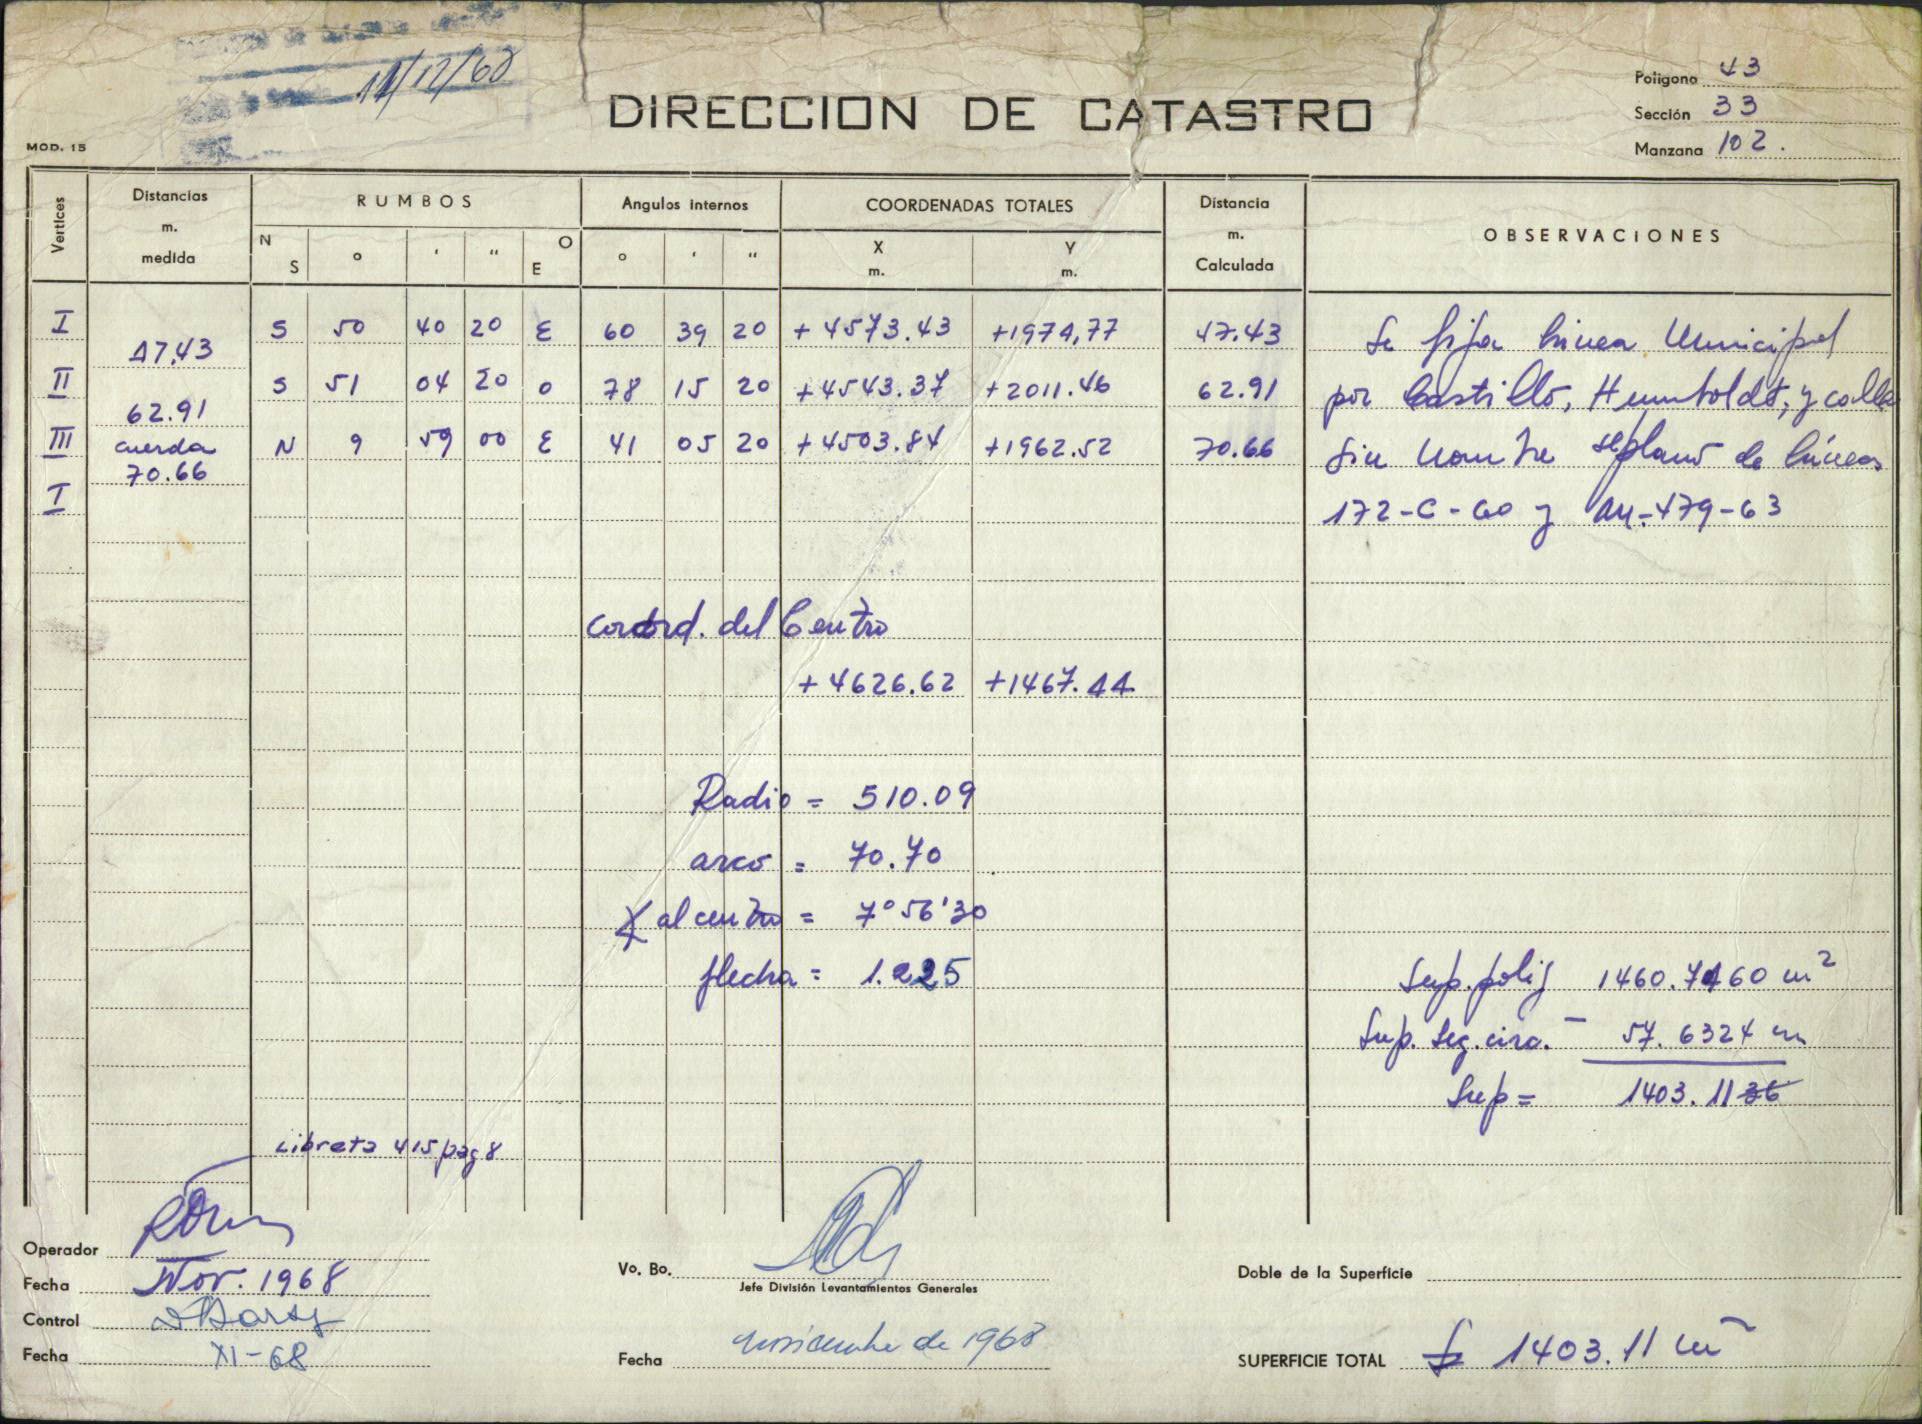 11/12/68
DIRECCION DE CATASTRO
Poligono 43
Sección 33
Manzana 102.
MOD. 15
Vertices
Distancias m. medida
RUMBOS
Angulos internos
COORDENADAS TOTALES
Distancia m. Calculada
OBSERVACIONES
N S ° ' " O E
° ' "
X m. Y m.
I S 50 40 20 E 60 39 20 +4573.43 +1974,77 47.43
47.43
II S 51 04 20 O 78 15 20 +4543.37 +2011.46 62.91
62.91
III cuerda N 9 59 00 E 41 05 20 +4503.84 +1962.52 70.66
70.66
I
Se fija Linea Municipal
por Castillo, Humboldt, y calle
sin nombre s/plano de líneas
172-C-60 y au-479-63
coord. del Centro
+4626.62 +1467.44
Radio = 510.09
arco = 70.70
∡ al centro = 7°56'30
flecha = 1.225
Sup. polig 1460.7460 m²
Sup. Seg. circ. - 57.6324 m
Sup = 1403.1136
Libreta 415 pag 8
Operador
Fecha Nov. 1968
Control
Fecha XI-68
Vo. Bo.
Jefe División Levantamientos Generales
Fecha noviembre de 1968
Doble de la Superficie
SUPERFICIE TOTAL 1403.11 m²